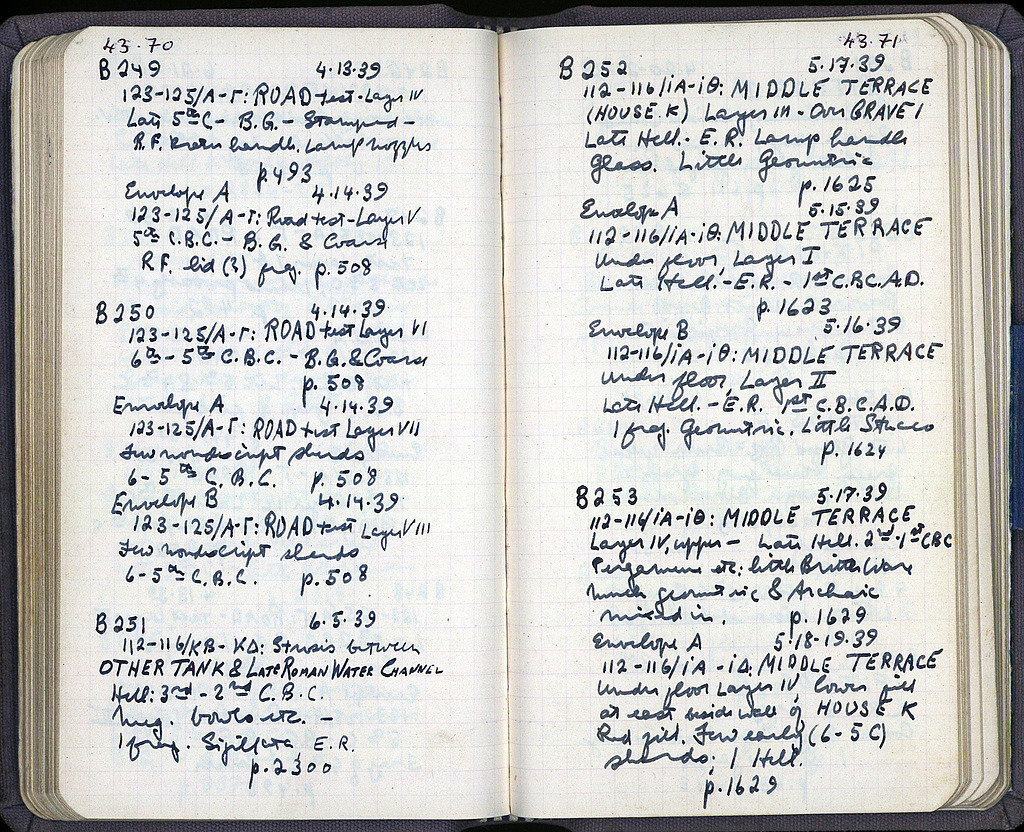 43.70
B 249 4.13.39
123-125/Α-Γ: ROAD test-Layer IV
Late 5th C - B.G. - Stamped -
R.F. krater handle. Lamp nozzles
p.493
Envelope A 4.14.39
123-125/Α-Γ: Road test-Layer V
5th C.B.C. - B.G. & Coarse
R.F. lid (?) frag. p. 508
B 250 4.14.39
123-125/Α-Γ: ROAD test Layer VI
6th - 5th C.B.C. - B.G. & Coarse
p. 508
Envelope A 4.14.39
123-125/Α-Γ: ROAD test Layer VII
Few nondescript sherds
6 - 5th C. B.C. p. 508
Envelope B 4.14.39
123-125/Α-Γ: ROAD test Layer VIII
Few nondescript sherds
6-5th C. B.C. p. 508
B 251 6.5.39
112-116/ΚΒ-ΚΔ: Strosis between
OTHER TANK & LATE ROMAN WATER CHANNEL
Hell: 3rd - 2nd C. B.C.
Meg. bowls etc. -
1 frag. Sigillata E.R.
p. 2300
43.71
B 252 5.17.39
112-116/ΙΑ-ΙΘ: MIDDLE TERRACE
(HOUSE K) Layer III - Over GRAVE 1
Late Hell. - E.R. Lamp handle
Glass. Little Geometric
p. 1625
Envelope A 5.15.39
112-116/ΙΑ-ΙΘ. MIDDLE TERRACE
Under floor, Layer I
Late Hell. - E.R. - 1st C.B.C.A.D.
p. 1623
Envelope B 5.16.39
112-116/ΙΑ-ΙΘ: MIDDLE TERRACE
Under floor, Layer II
Late Hell. - E.R. 1st C.B.C.A.D.
1 frag. Geometric. Little Stucco
p. 1624
B 253 5.17.39
112-116/ΙΑ-ΙΘ: MIDDLE TERRACE
Layer IV, upper - Late Hell. 2nd-1st C BC
Pergamene etc: little Brittle Ware
much geometric & Archaic
mixed in. p. 1629
Envelope A 5.18-19.39
112-116/ΙΑ-ΙΔ. MIDDLE TERRACE
Under floor Layer IV lower fill
at east inside wall of HOUSE K
Red fill. Few early (6-5 C)
sherds; 1 Hell.
p. 1629